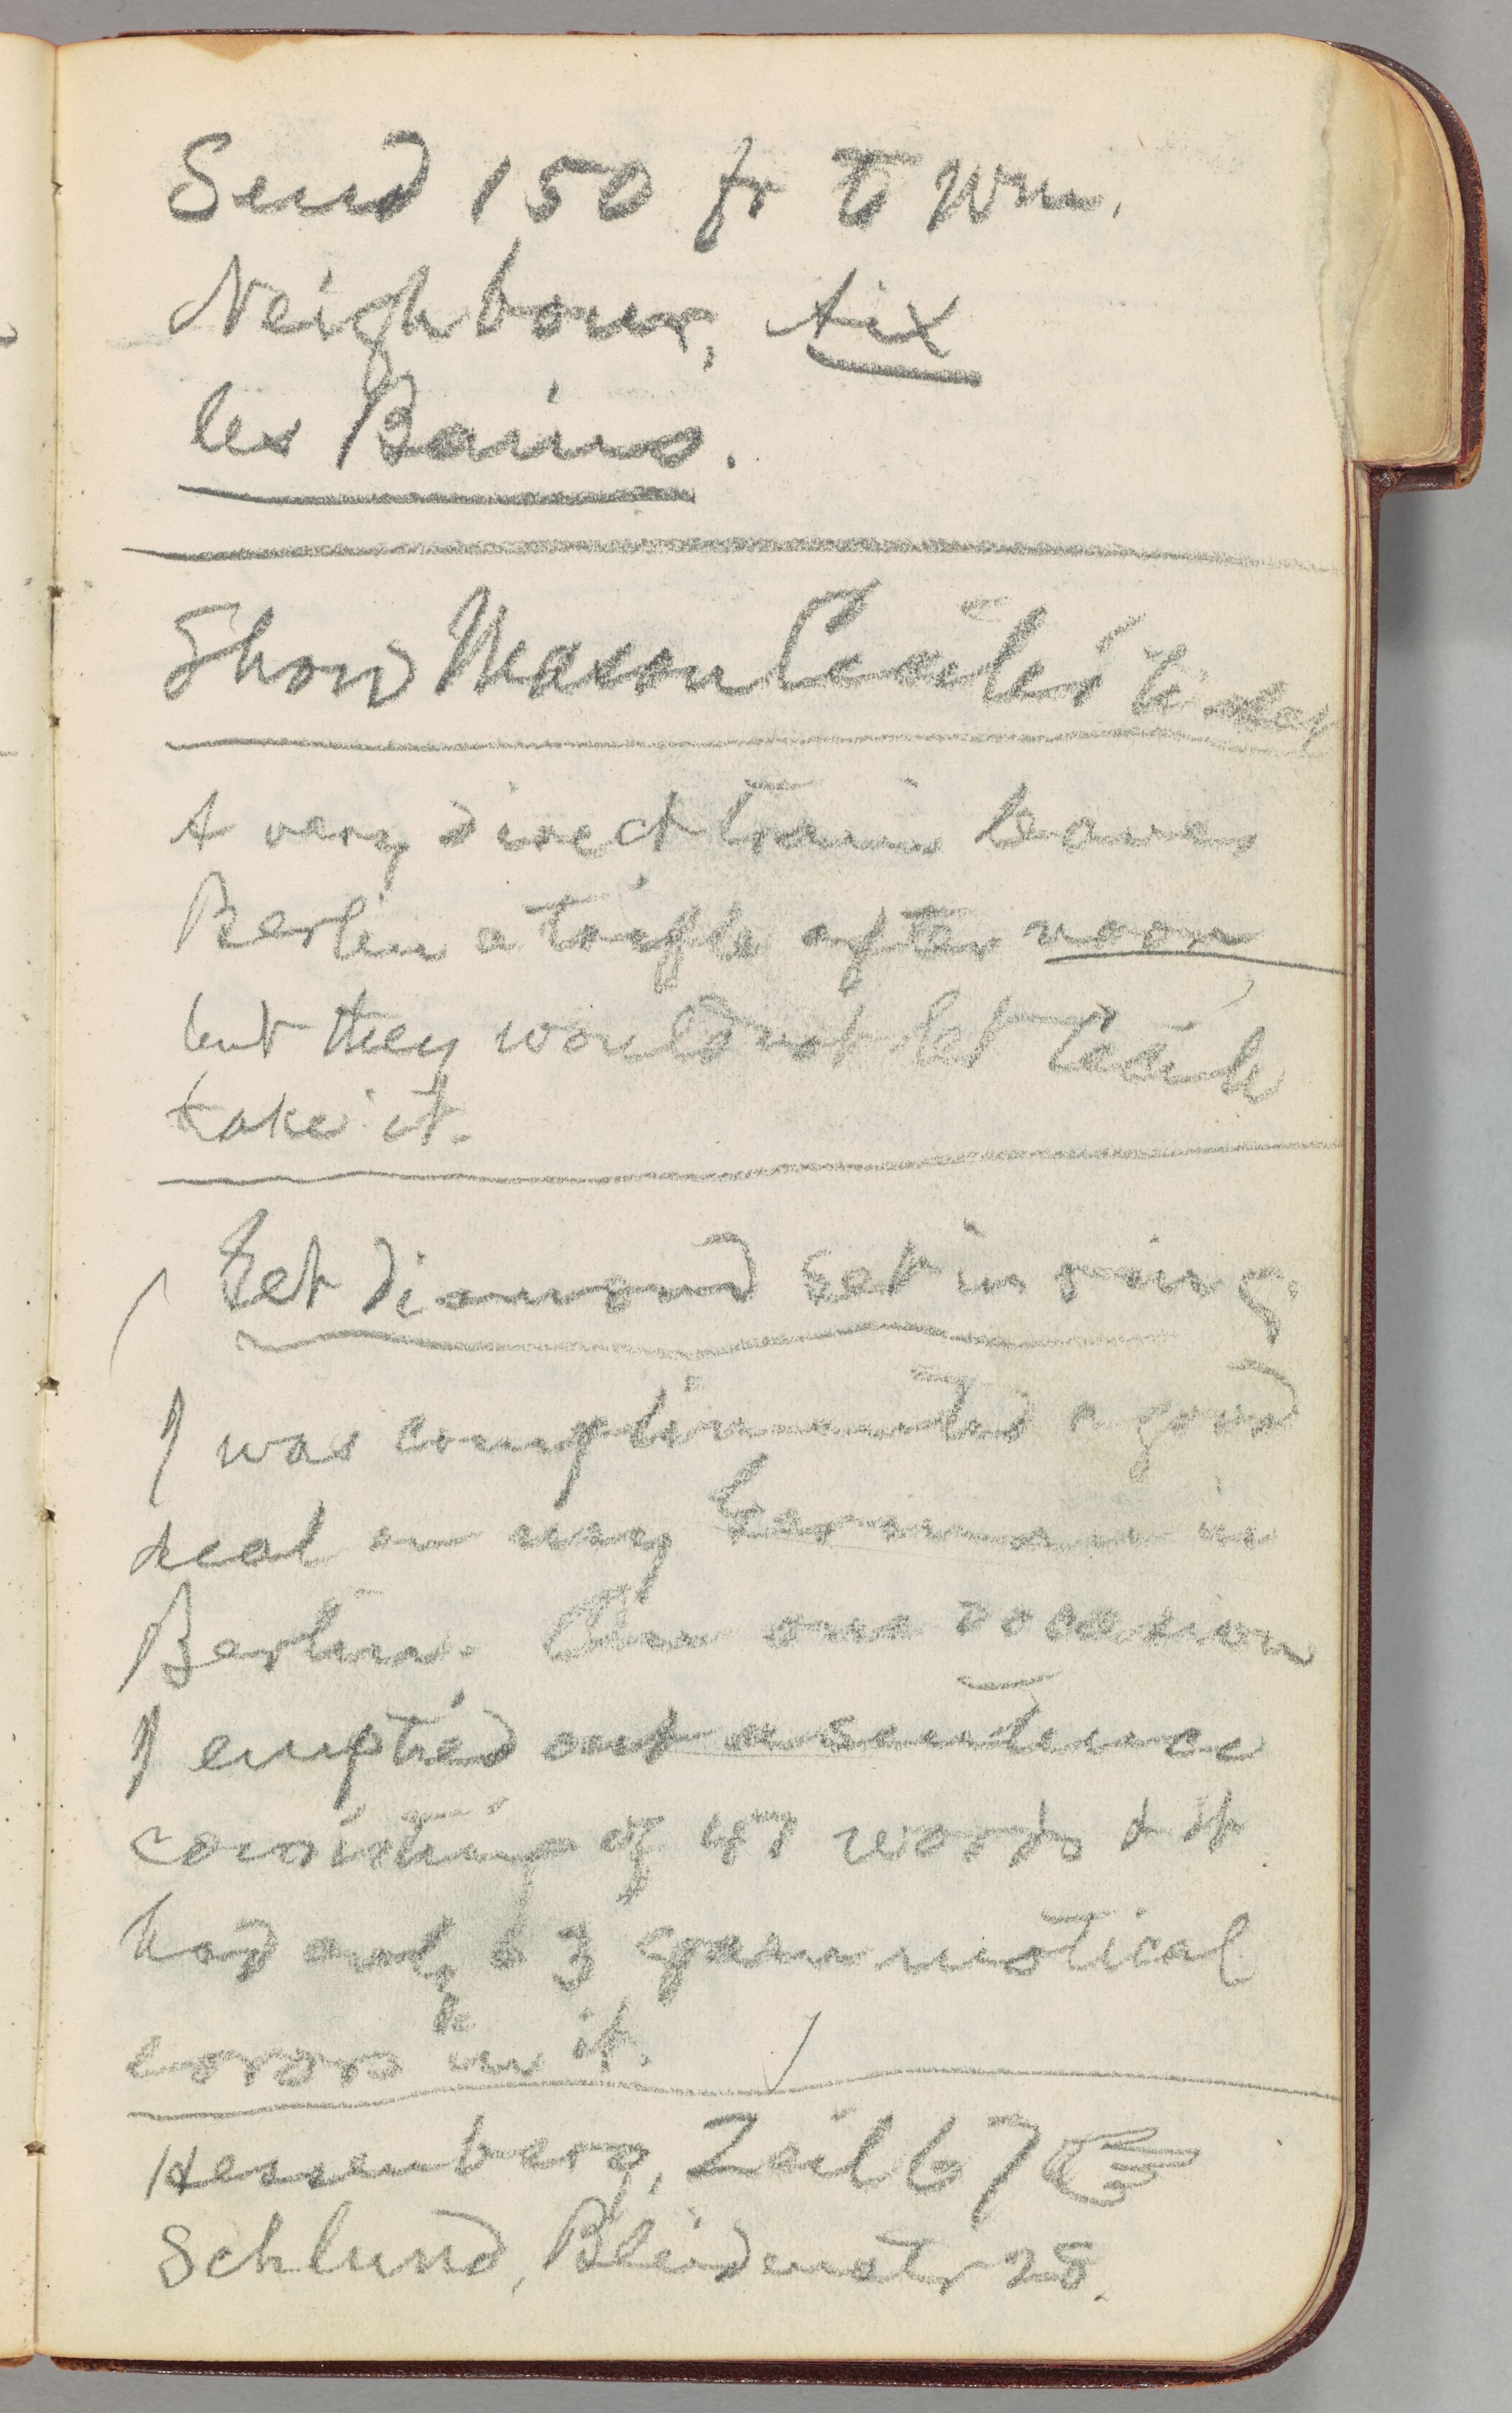 Send 150 fr to Wm.
Neighbour, Aix
les Bains.
Show Mason Cécile's ticket
A very direct train leaves
Berlin a trifle after noon,
but they would not let Cécile
take it.
Get diamond set in ring.
I was complimented a good
deal on my German in
Berlin. On one occasion
I emptied out a sentence
consisting of 47 words & it
had only 3 grammatical
errors in it.
Hessenberg, Zeil 67
Schlund, Bleidenstr 28.